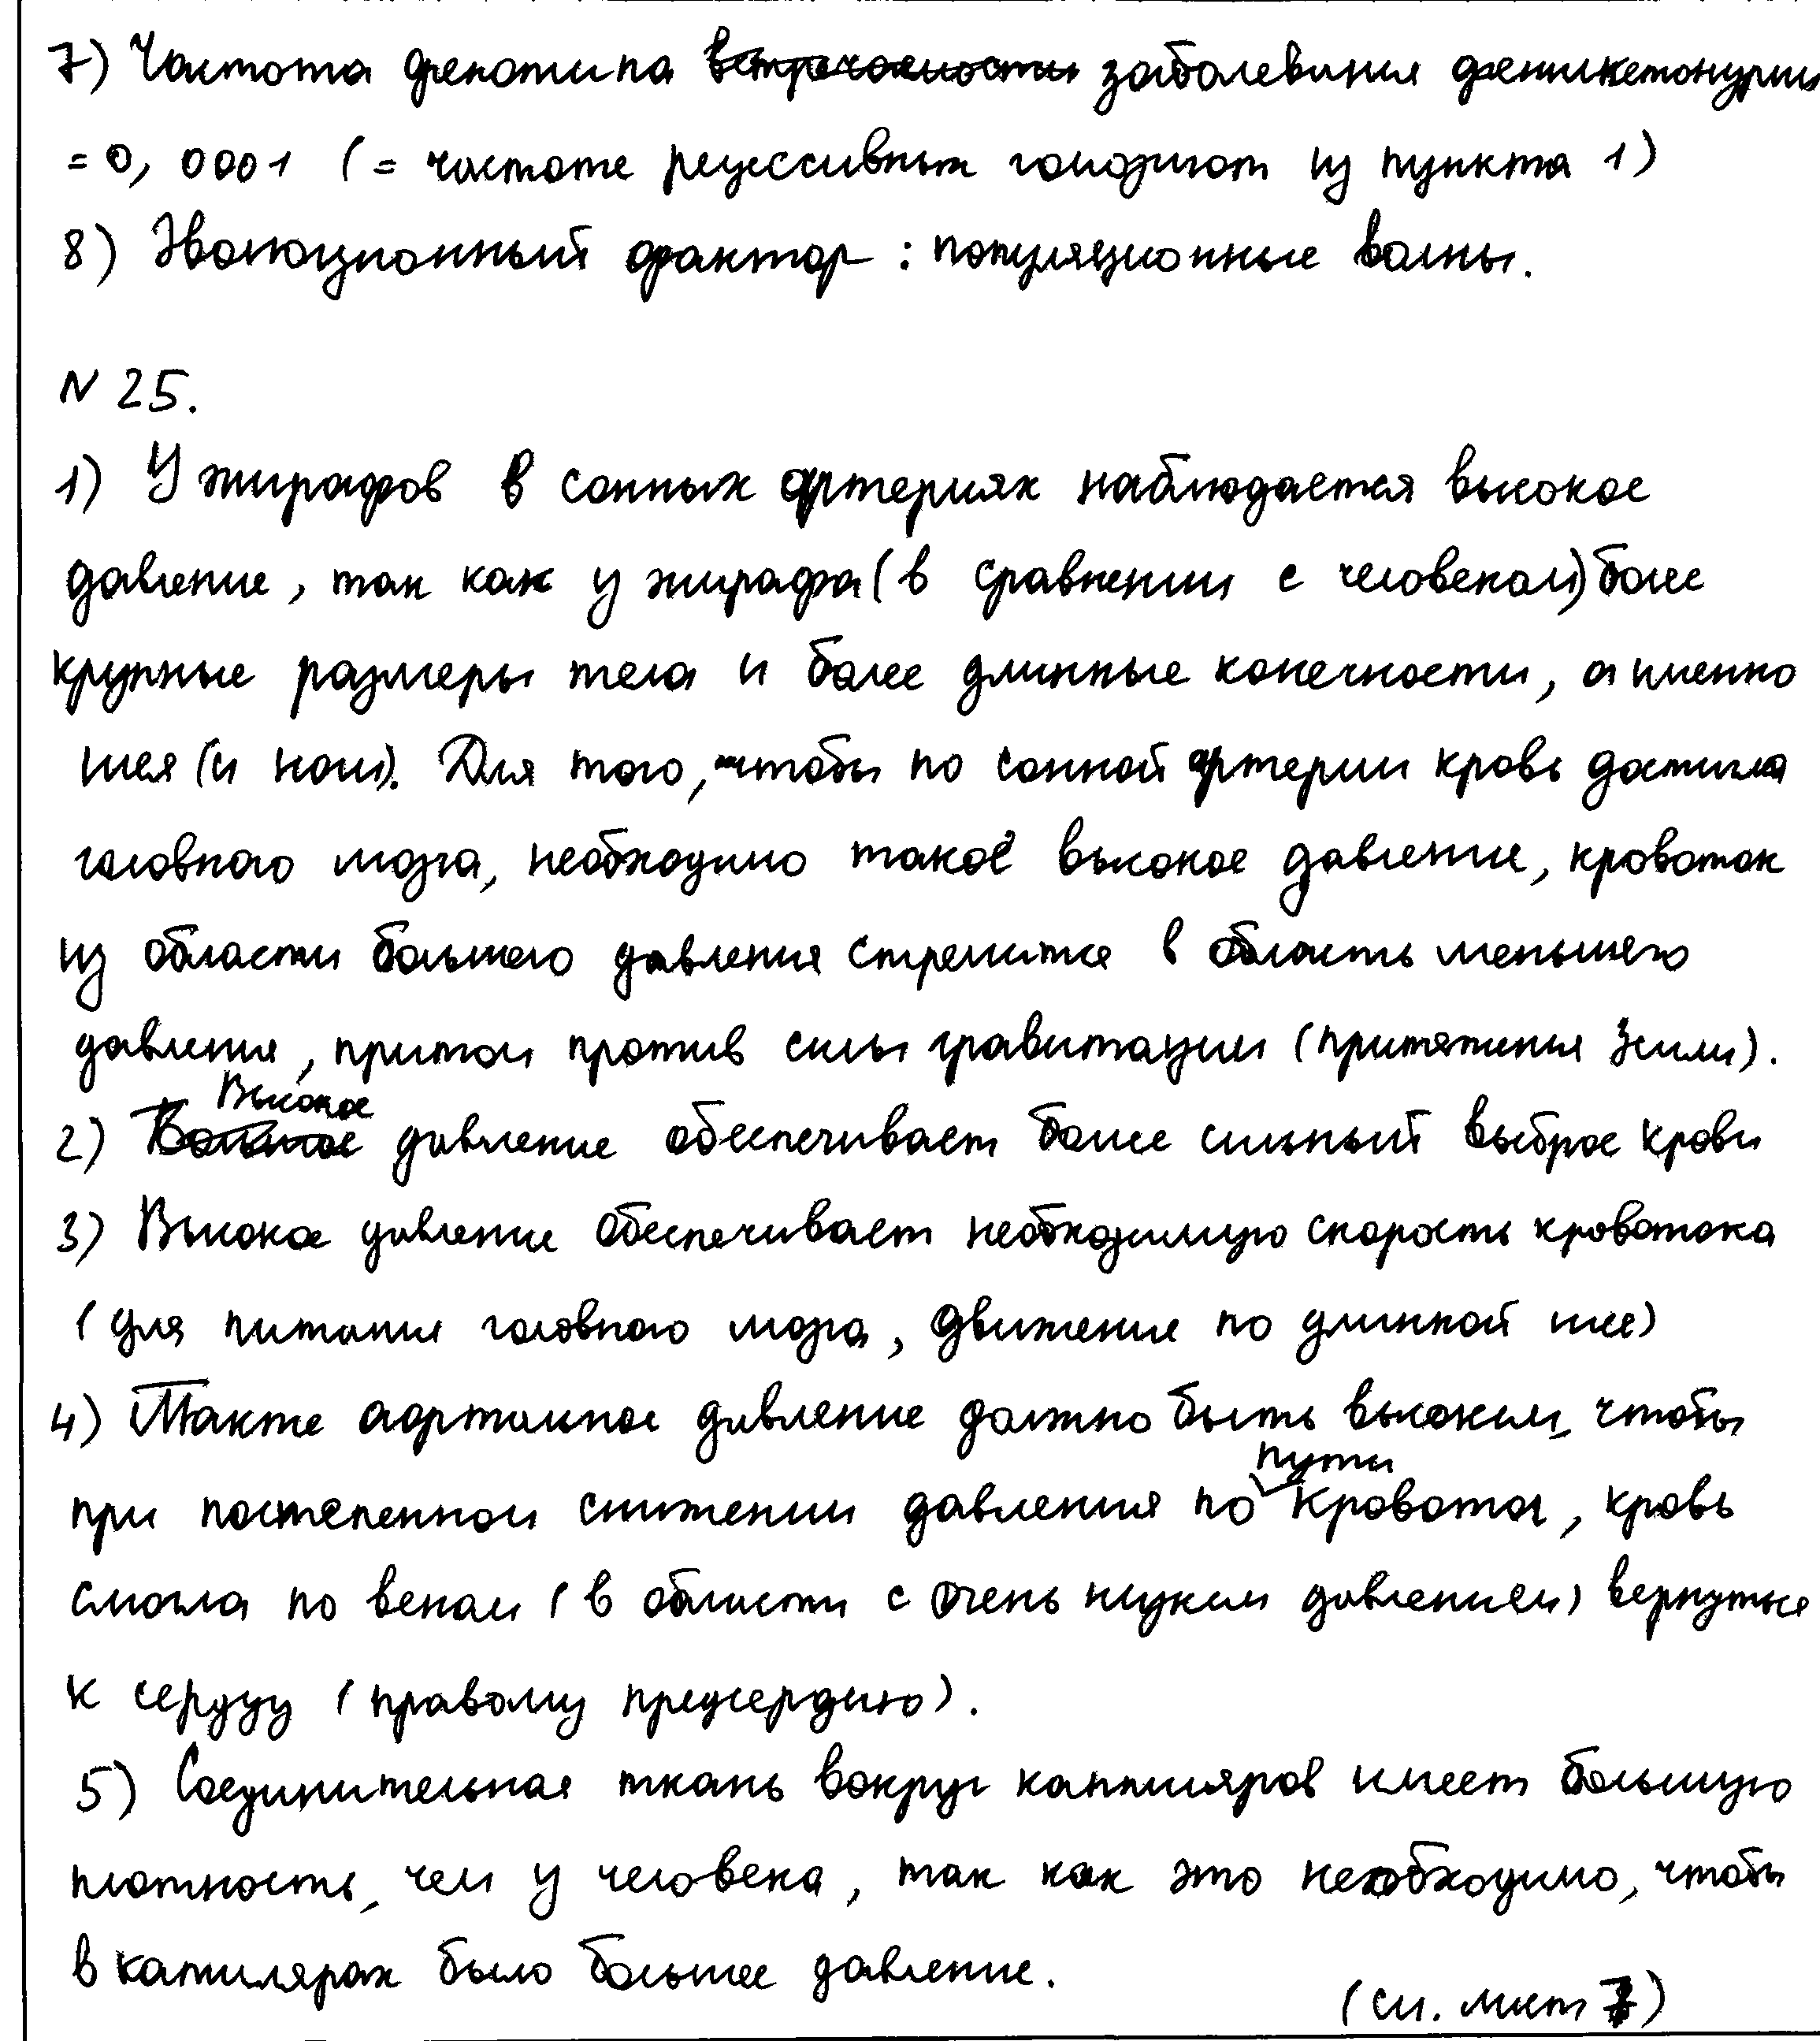 7) Частота фенотипа встречаемости заболевания фенилкетонурии
= 0,0001 (= частоте рецессивных гомозигот из пункта 1)
8) Эволюционный фактор: популяционные волны.
N 25.
1) У жирафов в сонных артериях наблюдается высокое
давление, так как у жирафа (в сравнении с человеком) более
крупные размеры тела и более длинные конечности, а именно
шея (и ноги). Для того, чтобы по сонной артерии кровь достигла
головного мозга, необходимо такое высокое давление, кровоток
из области большего давления стремится в область меньшего
давления, притом против силы гравитации (притяжения Земли).
Высокое
2) Большое давление обеспечивает более сильный выброс крови
3) Высокое давление обеспечивает необходимую скорость кровотока
(для питания головного мозга, движение по длинной шее)
4) Также аортальное давление должно быть высоким, чтобы
пути
при постепенном снижении давления по кровотока, кровь
смогла по венам (в области с очень низким давлением) вернуться
к сердцу (правому предсердию).
5) Соединительная ткань вокруг капилляров имеет большую
плотность, чем у человека, так как это необходимо, чтобы
в капилярах было большее давление.
(см. лист 7)